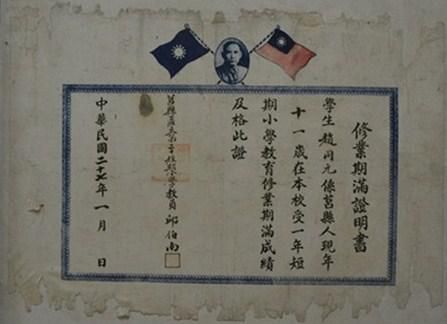 修業期滿證明書
學生趙同元係莒縣人現年
十一歲在本校受一年短
期小學教育修業期滿成績
及格此證
莒縣 短期小學教員 邱伯尚
中華民國二十七年一月 日